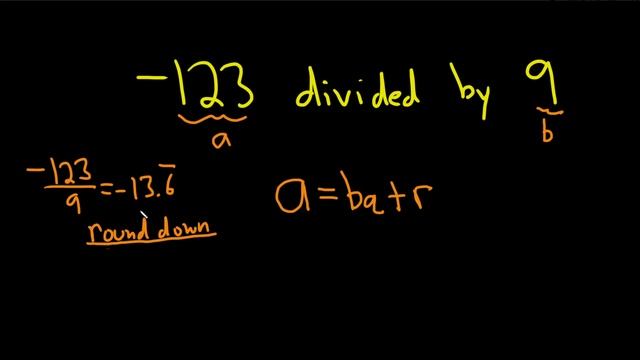 -123 divided by 9
a
b
-123/9 = -13.6̅
a = bq + r
round down